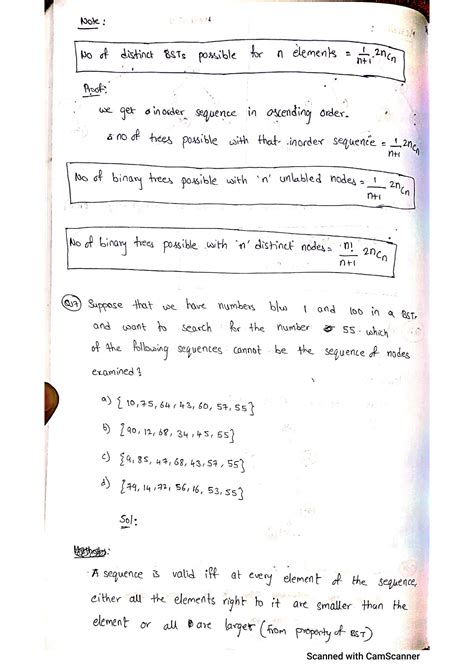 Note :
No of distinct BSTs possible for n elements = 1/n+1 2nCn
Proof:
we get inorder sequence in ascending order.
& no of trees possible with that inorder sequence = 1/n+1 2nCn
No of binary trees possible with 'n' unlabled nodes = 1/n+1 2nCn
No of binary trees possible with 'n' distinct nodes = n!/n+1 2nCn
Q17 Suppose that we have numbers b/w 1 and 100 in a BST,
and want to search for the number 55. which
of the following sequences cannot be the sequence of nodes
examined?
a) { 10, 75, 64, 43, 60, 57, 55}
b) {90, 12, 68, 34, 45, 55}
c) {9, 85, 47, 68, 43, 57, 55}
d) {79, 14, 72, 56, 16, 53, 55}
Sol:
A sequence is valid iff at every element of the sequence,
either all the elements right to it are smaller than the
element or all are larger (from property of BST)
Scanned with CamScanner